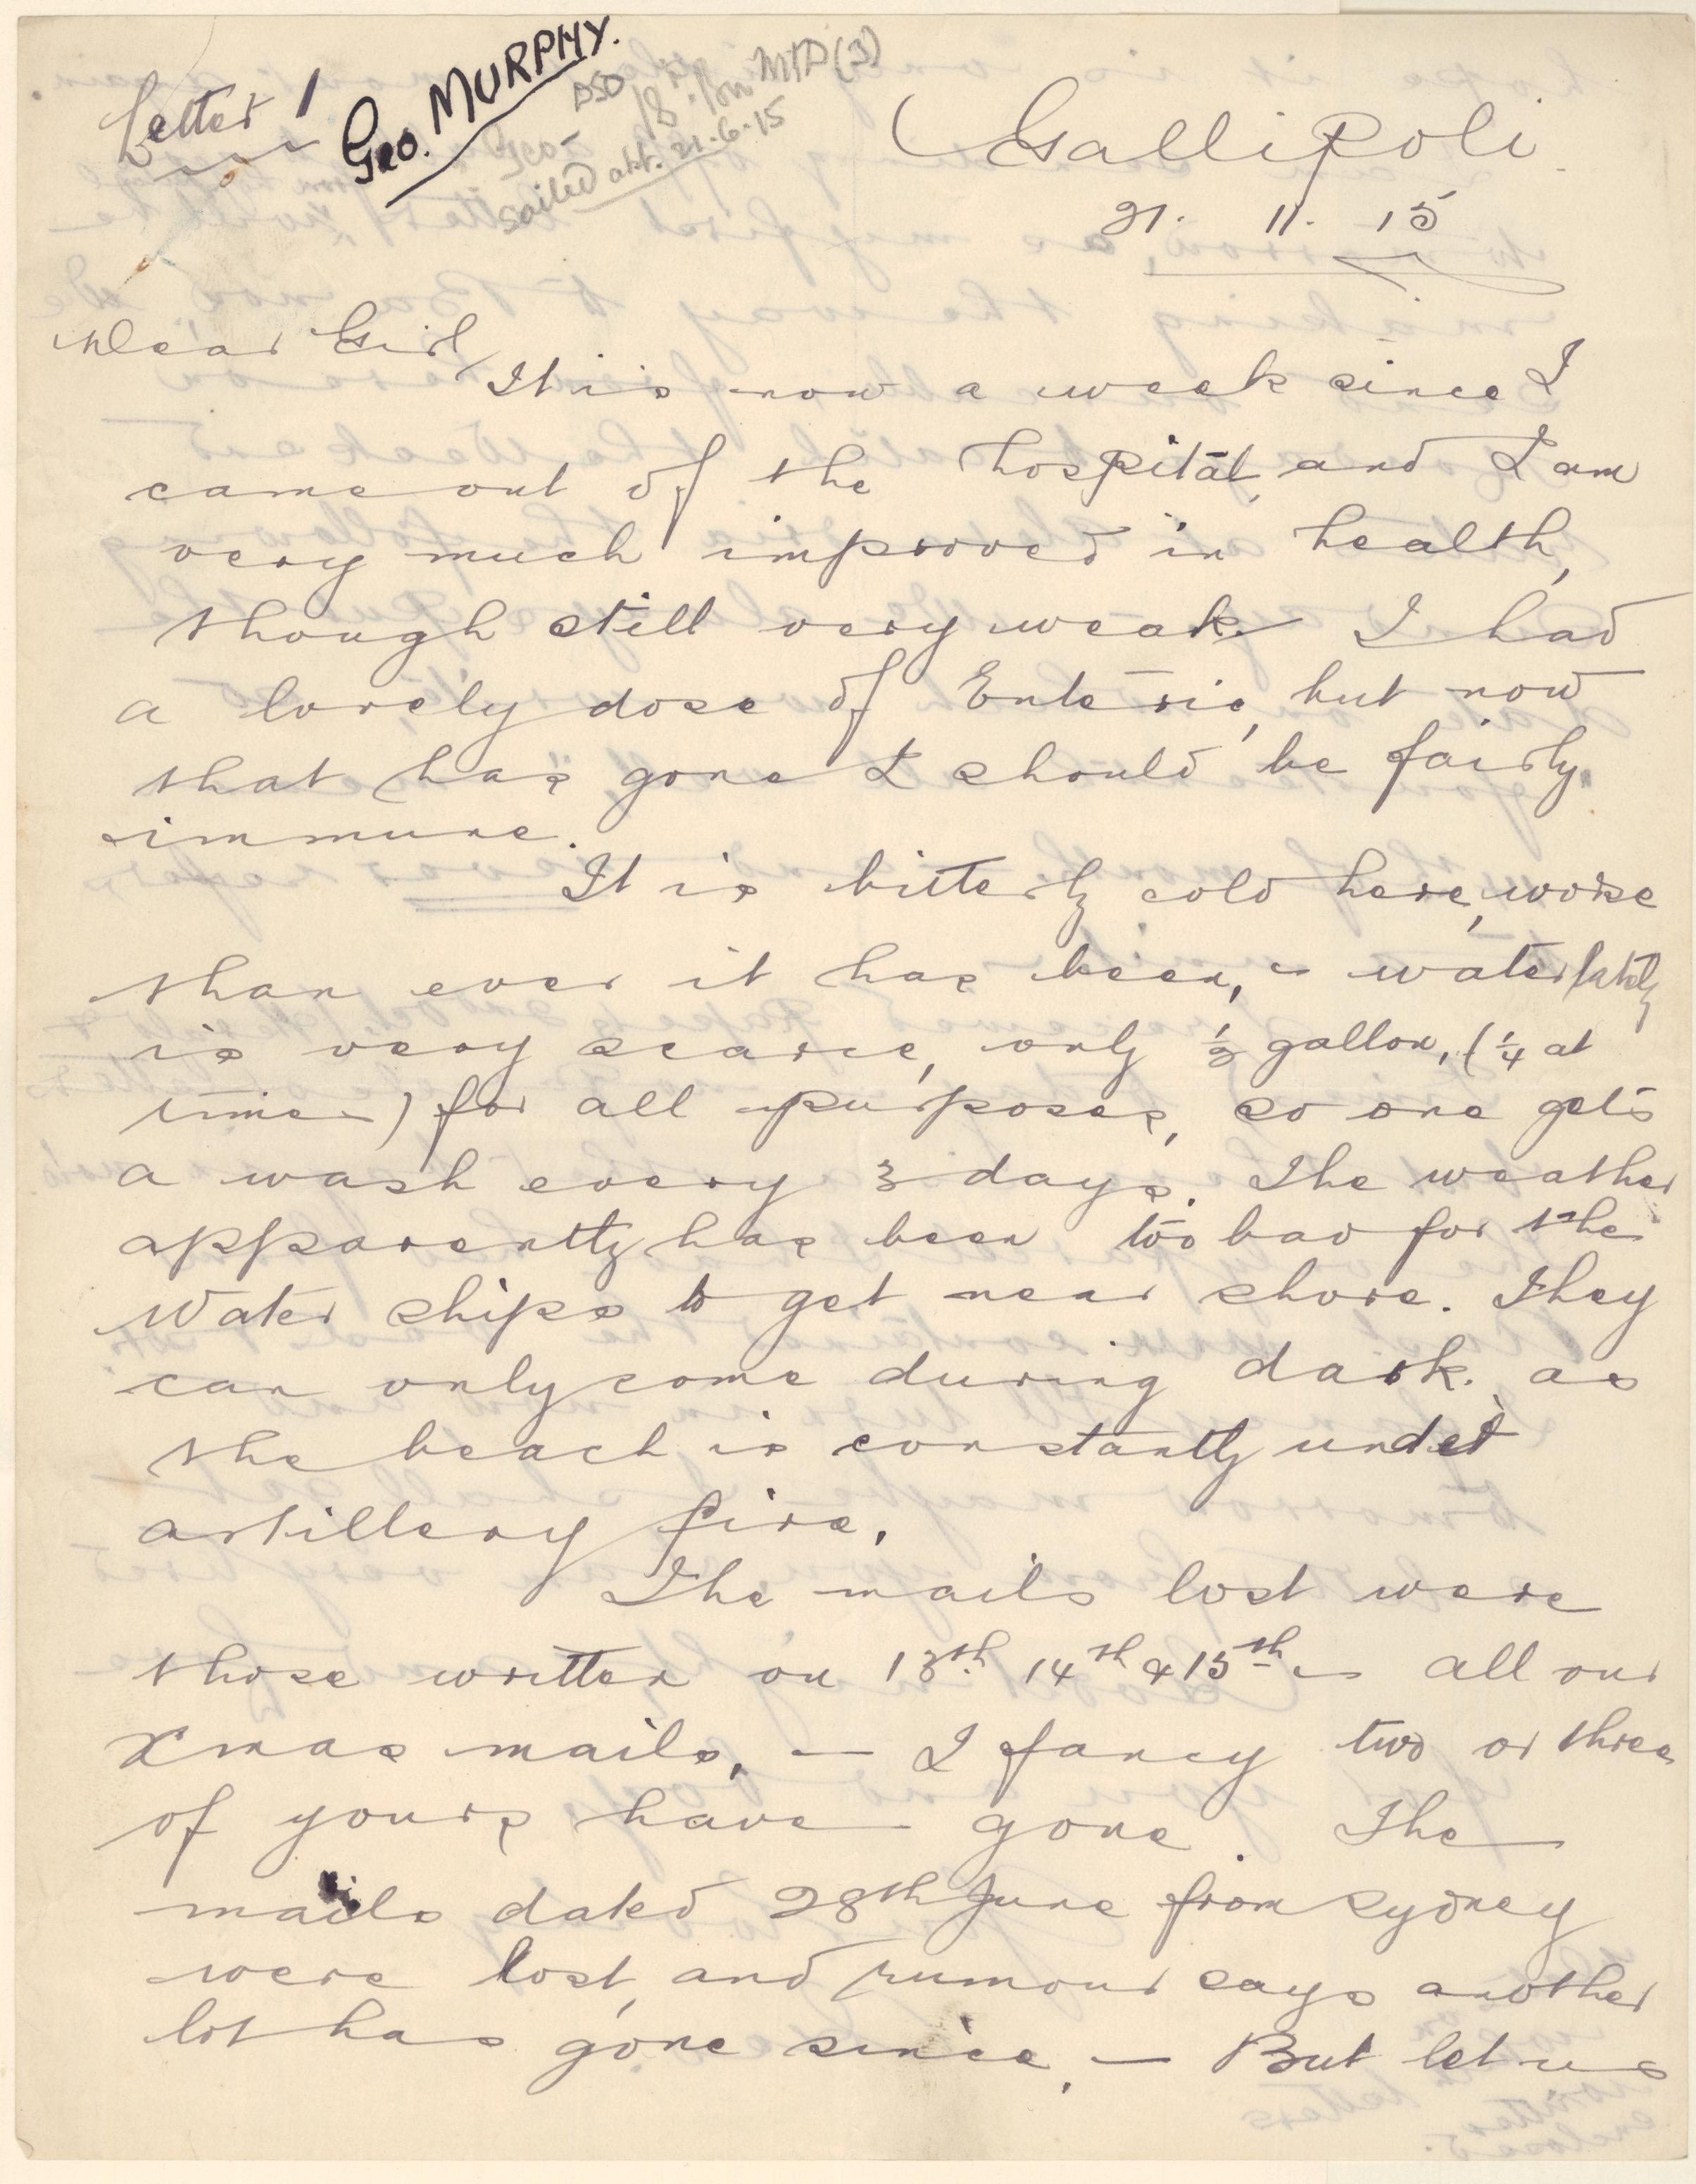 Letter 1
Geo. MURPHY.
DSO
MID (3)
Geo-
18
sailed abt. 21.6.15
Gallipoli
21. 11. 15
Dear Girl,
It is now a week since I
came out of the hospital, and I am
very much improved in health,
though still very weak. I had
a lovely dose of Enteric, but now
that has gone I should be fairly
immune.
It is bitterly cold here, worse
than ever it has been, & water lately
is very scarce, only ½ gallon, (¼ at
times) for all purposes, so one gets
a wash every 3 days. The weather
apparently has been too bad for the
water ships to get near shore. They
can only come during dark. as
the beach is constantly under
artillery fire.
The mails lost were
those written on 13th. 14th & 15th & all our
Xmas mails, — I fancy two or three
of yours have gone. The
mails dated 28th June from Sydney
were lost, and rumour says another
lot has gone since, — But let us